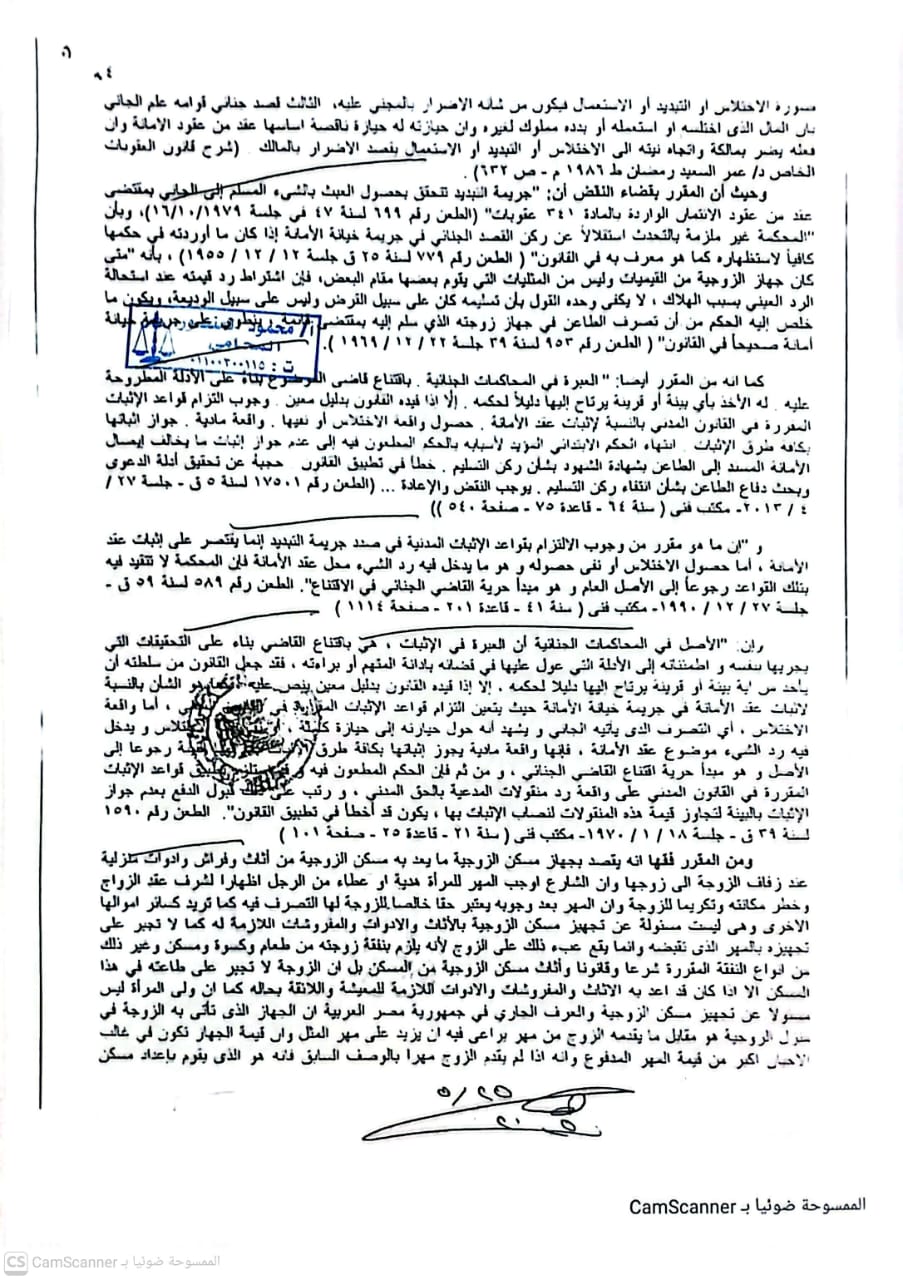 ٩٤
صورة الاختلاس او التبديد أو الاستعمال فيكون من شأنه الاضرار بالمجني عليه، الثالث قصد جنائي قوامه علم الجاني
بان المال الذى اختلسه او استعمله أو بدده مملوك لغيره وان حيازته له حيازة ناقصة اساسها عقد من عقود الامانة وان
فعله يضر بمالكة واتجاه نيته الى الاختلاس أو التبديد أو الاستعمال بقصد الاضرار بالمالك . (شرح قانون العقوبات
الخاص د/ عمر السعيد رمضان ط ١٩٨٦ م - ص ٦٣٢) .
وحيث أن المقرر بقضاء النقض أن: "جريمة التبديد تتحقق بحصول العبث بالشيء المسلم إلى الجاني بمقتضى
عقد من عقود الائتمان الواردة بالمادة ٣٤١ عقوبات" (الطعن رقم ٦٩٩ لسنة ٤٧ في جلسة ١٦/١٠/١٩٧٩)، وبأن
"المحكمة غير ملزمة بالتحدث استقلالاً عن ركن القصد الجنائي في جريمة خيانة الأمانة إذا كان ما أوردته في حكمها
كافياً لاستظهاره كما هو معرف به في القانون" ( الطعن رقم ٧٧٩ لسنة ٢٥ ق جلسة ١٢ / ١٢ / ١٩٥٥) ، بأنه "متى
كان جهاز الزوجية من القيميات وليس من المثليات التي يقوم بعضها مقام البعض، فإن اشتراط رد قيمته عند استحالة
الرد العيني بسبب الهلاك ، لا يكفي وحده القول بأن تسليمه كان على سبيل القرض وليس على سبيل الوديعة، ويكون ما
خلص إليه الحكم من أن تصرف الطاعن في جهاز زوجته الذي سلم إليه بمقتضى قائمة ، ينطوي على جريمة خيانة
أمانة صحيحاً في القانون" ( الطعن رقم ٩٥٣ لسنة ٣٩ جلسة ٢٢ / ١٢ / ١٩٦٩ ).
المحامي
ت : ٠١١٠٠٣٠٠١١٥
كما انه من المقرر أيضا: " العبرة في المحاكمات الجنائية . باقتناع قاضى الموضوع بناء على الأدلة المطروحة
عليه . له الأخذ بأي بينة أو قرينة يرتاح إليها دليلاً لحكمه . إلا اذا قيده القانون بدليل معين . وجوب التزام قواعد الإثبات
المقررة في القانون المدني بالنسبة لإثبات عقد الأمانة . حصول واقعة الاختلاس أو نفيها . واقعة مادية . جواز اثباتها
بكافة طرق الإثبات . انتهاء الحكم الابتدائي المؤيد لأسبابه بالحكم المطعون فيه إلى عدم جواز إثبات ما يخالف إيصال
الأمانة المسند إلى الطاعن بشهادة الشهود بشأن ركن التسليم . خطأ في تطبيق القانون . حجبة عن تحقيق أدلة الدعوى
وبحث دفاع الطاعن بشأن انتفاء ركن التسليم . يوجب النقض والإعادة ... (الطعن رقم ١٧٥٠١ لسنة ٥ ق - جلسة ٢٧ /
٤ / ٢٠١٣- مكتب فنى ( سنة ٦٤ - قاعدة ٧٥ - صفحة ٥٤٠ ))
و "إن ما هو مقرر من وجوب الالتزام بقواعد الإثبات المدنية في صدد جريمة التبديد إنما يقتصر على إثبات عقد
الأمانة ، أما حصول الاختلاس أو نفى حصوله و هو ما يدخل فيه رد الشيء محل عقد الأمانة فإن المحكمة لا تتقيد فيه
بتلك القواعد رجوعاً إلى الأصل العام و هو مبدأ حرية القاضي الجنائي في الاقتناع". الطعن رقم ٥٨٩ لسنة ٥٩ ق -
جلسة ٢٧ / ١٢ / ١٩٩٠- مكتب فنى ( سنة ٤١ - قاعدة ٢٠١ - صفحة ١١١٤ )
وإن: "الأصل في المحاكمات الجنائية أن العبرة في الإثبات ، هي باقتناع القاضي بناء على التحقيقات التي
يجريها بنفسه و اطمئنانه إلى الأدلة التي عول عليها في قضائه بإدانة المتهم أو براءته ، فقد جعل القانون من سلطته أن
يأخذ من أية بينة أو قرينة يرتاح إليها دليلا لحكمه ، إلا إذا قيده القانون بدليل معين ينص عليه هو الشأن بالنسبة
لاثبات عقد الأمانة في جريمة خيانة الأمانة حيث يتعين التزام قواعد الإثبات المقررة في ، أما واقعة
الاختلاس ، أي التصرف الذى يأتيه الجاني و يشهد أنه حول حيازته إلى حيازة كاملة ، و يدخل
فيه رد الشيء موضوع عقد الأمانة ، فإنها واقعة مادية يجوز إثباتها بكافة طرق رجوعا إلى
الأصل و هو مبدأ حرية اقتناع القاضي الجنائي ، و من ثم فإن الحكم المطعون فيه و تطبيق قواعد الإثبات
المقررة في القانون المدني على واقعة رد منقولات المدعية بالحق المدني ، و رتب على قبول الدفع بعدم جواز
الإثبات بالبينة لتجاوز قيمة هذه المنقولات لنصاب الإثبات بها ، يكون قد أخطأ في تطبيق القانون". الطعن رقم ١٥٩٠
لسنة ٣٩ ق - جلسة ١٨ / ١ / ١٩٧٠- مكتب فنى ( سنة ٢١ - قاعدة ٢٥ - صفحة ١٠١ )
ومن المقرر فقها انه يقصد بجهاز مسكن الزوجية ما يعد به مسكن الزوجية من أثاث وفراش وادوات منزلية
عند زفاف الزوجة الى زوجها وان الشارع اوجب المهر للمرأة هدية او عطاء من الرجل اظهارا لشرف عقد الزواج
وخطر مكانته وتكريما للزوجة وان المهر بعد وجوبه يعتبر حقا خالصا للزوجة لها التصرف فيه كما تريد كسائر اموالها
الاخرى وهى ليست مسئولة عن تجهيز مسكن الزوجية بالأثاث والادوات والمفروشات اللازمة له كما لا تجبر على
تجهيزه بالمهر الذى تقبضه وانما يقع عبء ذلك على الزوج لأنه يلزم بنفقة زوجته من طعام وكسوة ومسكن وغير ذلك
من انواع النفقة المقررة شرعا وقانونا وأثاث مسكن الزوجية من المسكن بل ان الزوجة لا تجبر على طاعته في هذا
المسكن الا اذا كان قد اعد به الاثاث والمفروشات والادوات اللازمة للمعيشة واللائقة بحاله كما ان ولى المرأة ليس
مسئولا عن تجهيز مسكن الزوجية والعرف الجاري في جمهورية مصر العربية ان الجهاز الذى تأتى به الزوجة في
منزل الزوجية هو مقابل ما يقدمه الزوج من مهر يراعى فيه ان يزيد على مهر المثل وان قيمة الجهاز تكون في غالب
الاحيان اكبر من قيمة المهر المدفوع وانه اذا لم يقدم الزوج مهرا بالوصف السابق فانه هو الذى يقوم بإعداد مسكن
الممسوحة ضوئيا بـ CamScanner
CS CamScanner الممسوحة ضوئيا بـ